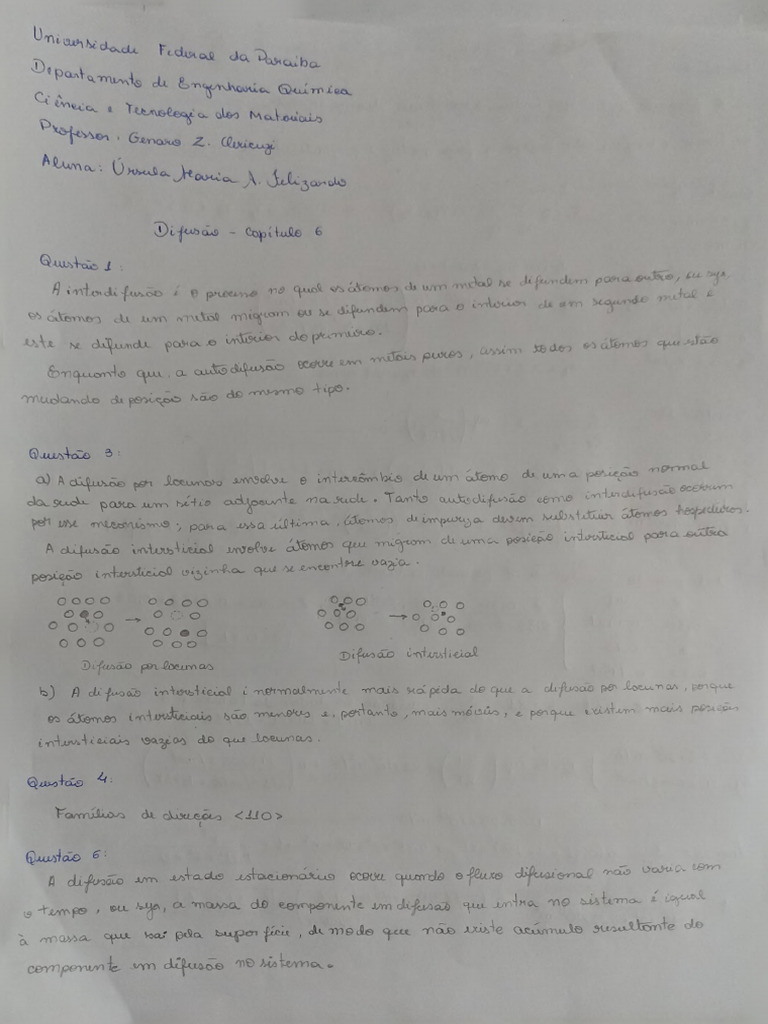 Universidade Federal da Paraíba
Departamento de Engenharia Química
Ciência e Tecnologia dos Materiais
Professor: Genaro Z.
Aluna: Úrsula Maria A. Felizardo
Difusão - Capítulo 6
Questão 1:
A interdifusão é o processo no qual os átomos de um metal se difundem para outro, ou seja,
os átomos de um metal migram ou se difundem para o interior de um segundo metal e
este se difunde para o interior do primeiro.
Enquanto que, a autodifusão ocorre em metais puros, assim todos os átomos que estão
mudando de posição são do mesmo tipo.
Questão 3:
a) A difusão por lacunas envolve o intercâmbio de um átomo de uma posição normal
da rede para um sítio adjacente na rede. Tanto autodifusão como interdifusão ocorrem
por esse mecanismo; para essa última, átomos de impureza devem substituir átomos hospedeiros.
A difusão intersticial envolve átomos que migram de uma posição intersticial para outra
posição intersticial vizinha que se encontre vazia.
Difusão por lacunas
Difusão intersticial
b) A difusão intersticial é normalmente mais rápida do que a difusão por lacunas, porque
os átomos intersticiais são menores e, portanto, mais móveis, e porque existem mais posições
intersticiais vazias do que lacunas.
Questão 4:
Famílias de direções <110>
Questão 6:
A difusão em estado estacionário ocorre quando o fluxo difusional não varia com
o tempo, ou seja, a massa do componente em difusão que entra no sistema é igual
à massa que sai pela superfície, de modo que não existe acúmulo resultante do
componente em difusão no sistema.